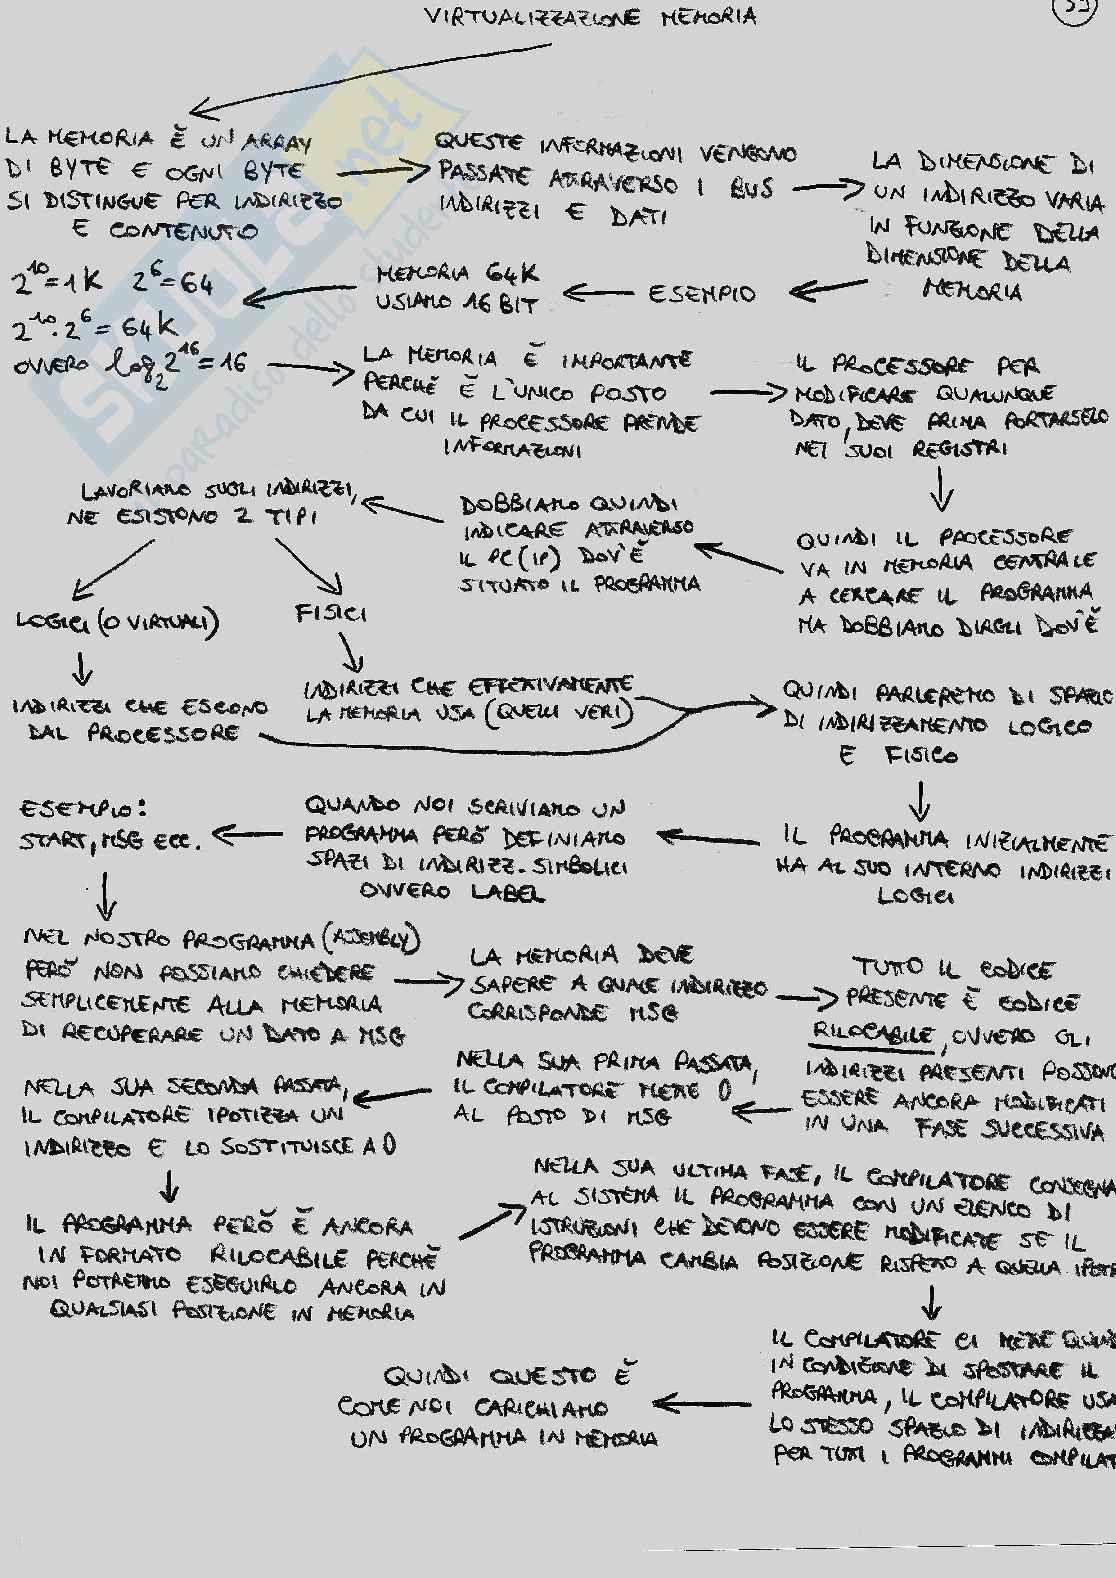 VIRTUALIZZAZIONE MEMORIA
LA MEMORIA È UN ARRAY
DI BYTE E OGNI BYTE
SI DISTINGUE PER INDIRIZZO
E CONTENUTO
QUESTE INFORMAZIONI VENGONO
PASSATE ATTRAVERSO I BUS
INDIRIZZI E DATI
LA DIMENSIONE DI
UN INDIRIZZO VARIA
IN FUNZIONE DELLA
DIMENSIONE DELLA
MEMORIA
ESEMPIO
MEMORIA 64K
USIAMO 16 BIT
2^10=1K 2^6=64
2^10·2^6=64K
OVVERO log₂2^16=16
LA MEMORIA È IMPORTANTE
PERCHÈ È L'UNICO POSTO
DA CUI IL PROCESSORE PRENDE
INFORMAZIONI
IL PROCESSORE PER
MODIFICARE QUALUNQUE
DATO, DEVE PRIMA PORTARSELO
NEI SUOI REGISTRI
QUINDI IL PROCESSORE
VA IN MEMORIA CENTRALE
A CERCARE IL PROGRAMMA
MA DOBBIAMO DIRGLI DOV'È
DOBBIAMO QUINDI
INDICARE ATTRAVERSO
IL PC (IP) DOV'È
SITUATO IL PROGRAMMA
LAVORIAMO SUGLI INDIRIZZI,
NE ESISTONO 2 TIPI
LOGICI (O VIRTUALI)
FISICI
INDIRIZZI CHE ESCONO
DAL PROCESSORE
INDIRIZZI CHE EFFETTIVAMENTE
LA MEMORIA USA (QUELLI VERI)
QUINDI PARLEREMO DI SPAZIO
DI INDIRIZZAMENTO LOGICO
E FISICO
IL PROGRAMMA INIZIALMENTE
HA AL SUO INTERNO INDIRIZZI
LOGICI
QUANDO NOI SCRIVIAMO UN
PROGRAMMA PERÒ DEFINIAMO
SPAZI DI INDIRIZZ. SIMBOLICI
OVVERO LABEL
ESEMPIO:
START, MSG ECC.
NEL NOSTRO PROGRAMMA (ASSEMBLY)
PERÒ NON POSSIAMO CHIEDERE
SEMPLICEMENTE ALLA MEMORIA
DI RECUPERARE UN DATO A MSG
LA MEMORIA DEVE
SAPERE A QUALE INDIRIZZO
CORRISPONDE MSG
TUTTO IL CODICE
PRESENTE È CODICE
RILOCABILE, OVVERO GLI
INDIRIZZI PRESENTI POSSONO
ESSERE ANCORA MODIFICATI
IN UNA FASE SUCCESSIVA
NELLA SUA PRIMA PASSATA,
IL COMPILATORE METTE 0
AL POSTO DI MSG
NELLA SUA SECONDA PASSATA,
IL COMPILATORE IPOTIZZA UN
INDIRIZZO E LO SOSTITUISCE A 0
IL PROGRAMMA PERÒ È ANCORA
IN FORMATO RILOCABILE PERCHÈ
NOI POTREMMO ESEGUIRLO ANCORA IN
QUALSIASI POSIZIONE IN MEMORIA
NELLA SUA ULTIMA FASE, IL COMPILATORE CONSEGNA
AL SISTEMA IL PROGRAMMA CON UN ELENCO DI
ISTRUZIONI CHE DEVONO ESSERE MODIFICATE SE IL
PROGRAMMA CAMBIA POSIZIONE RISPETTO A QUELLA
IL COMPILATORE CI METTE
IN CONDIZIONE DI SPOSTARE IL
PROGRAMMA, IL COMPILATORE USA
LO STESSO SPAZIO DI
PER TUTTI I PROGRAMMI
QUINDI QUESTO È
COME NOI CARICHIAMO
UN PROGRAMMA IN MEMORIA